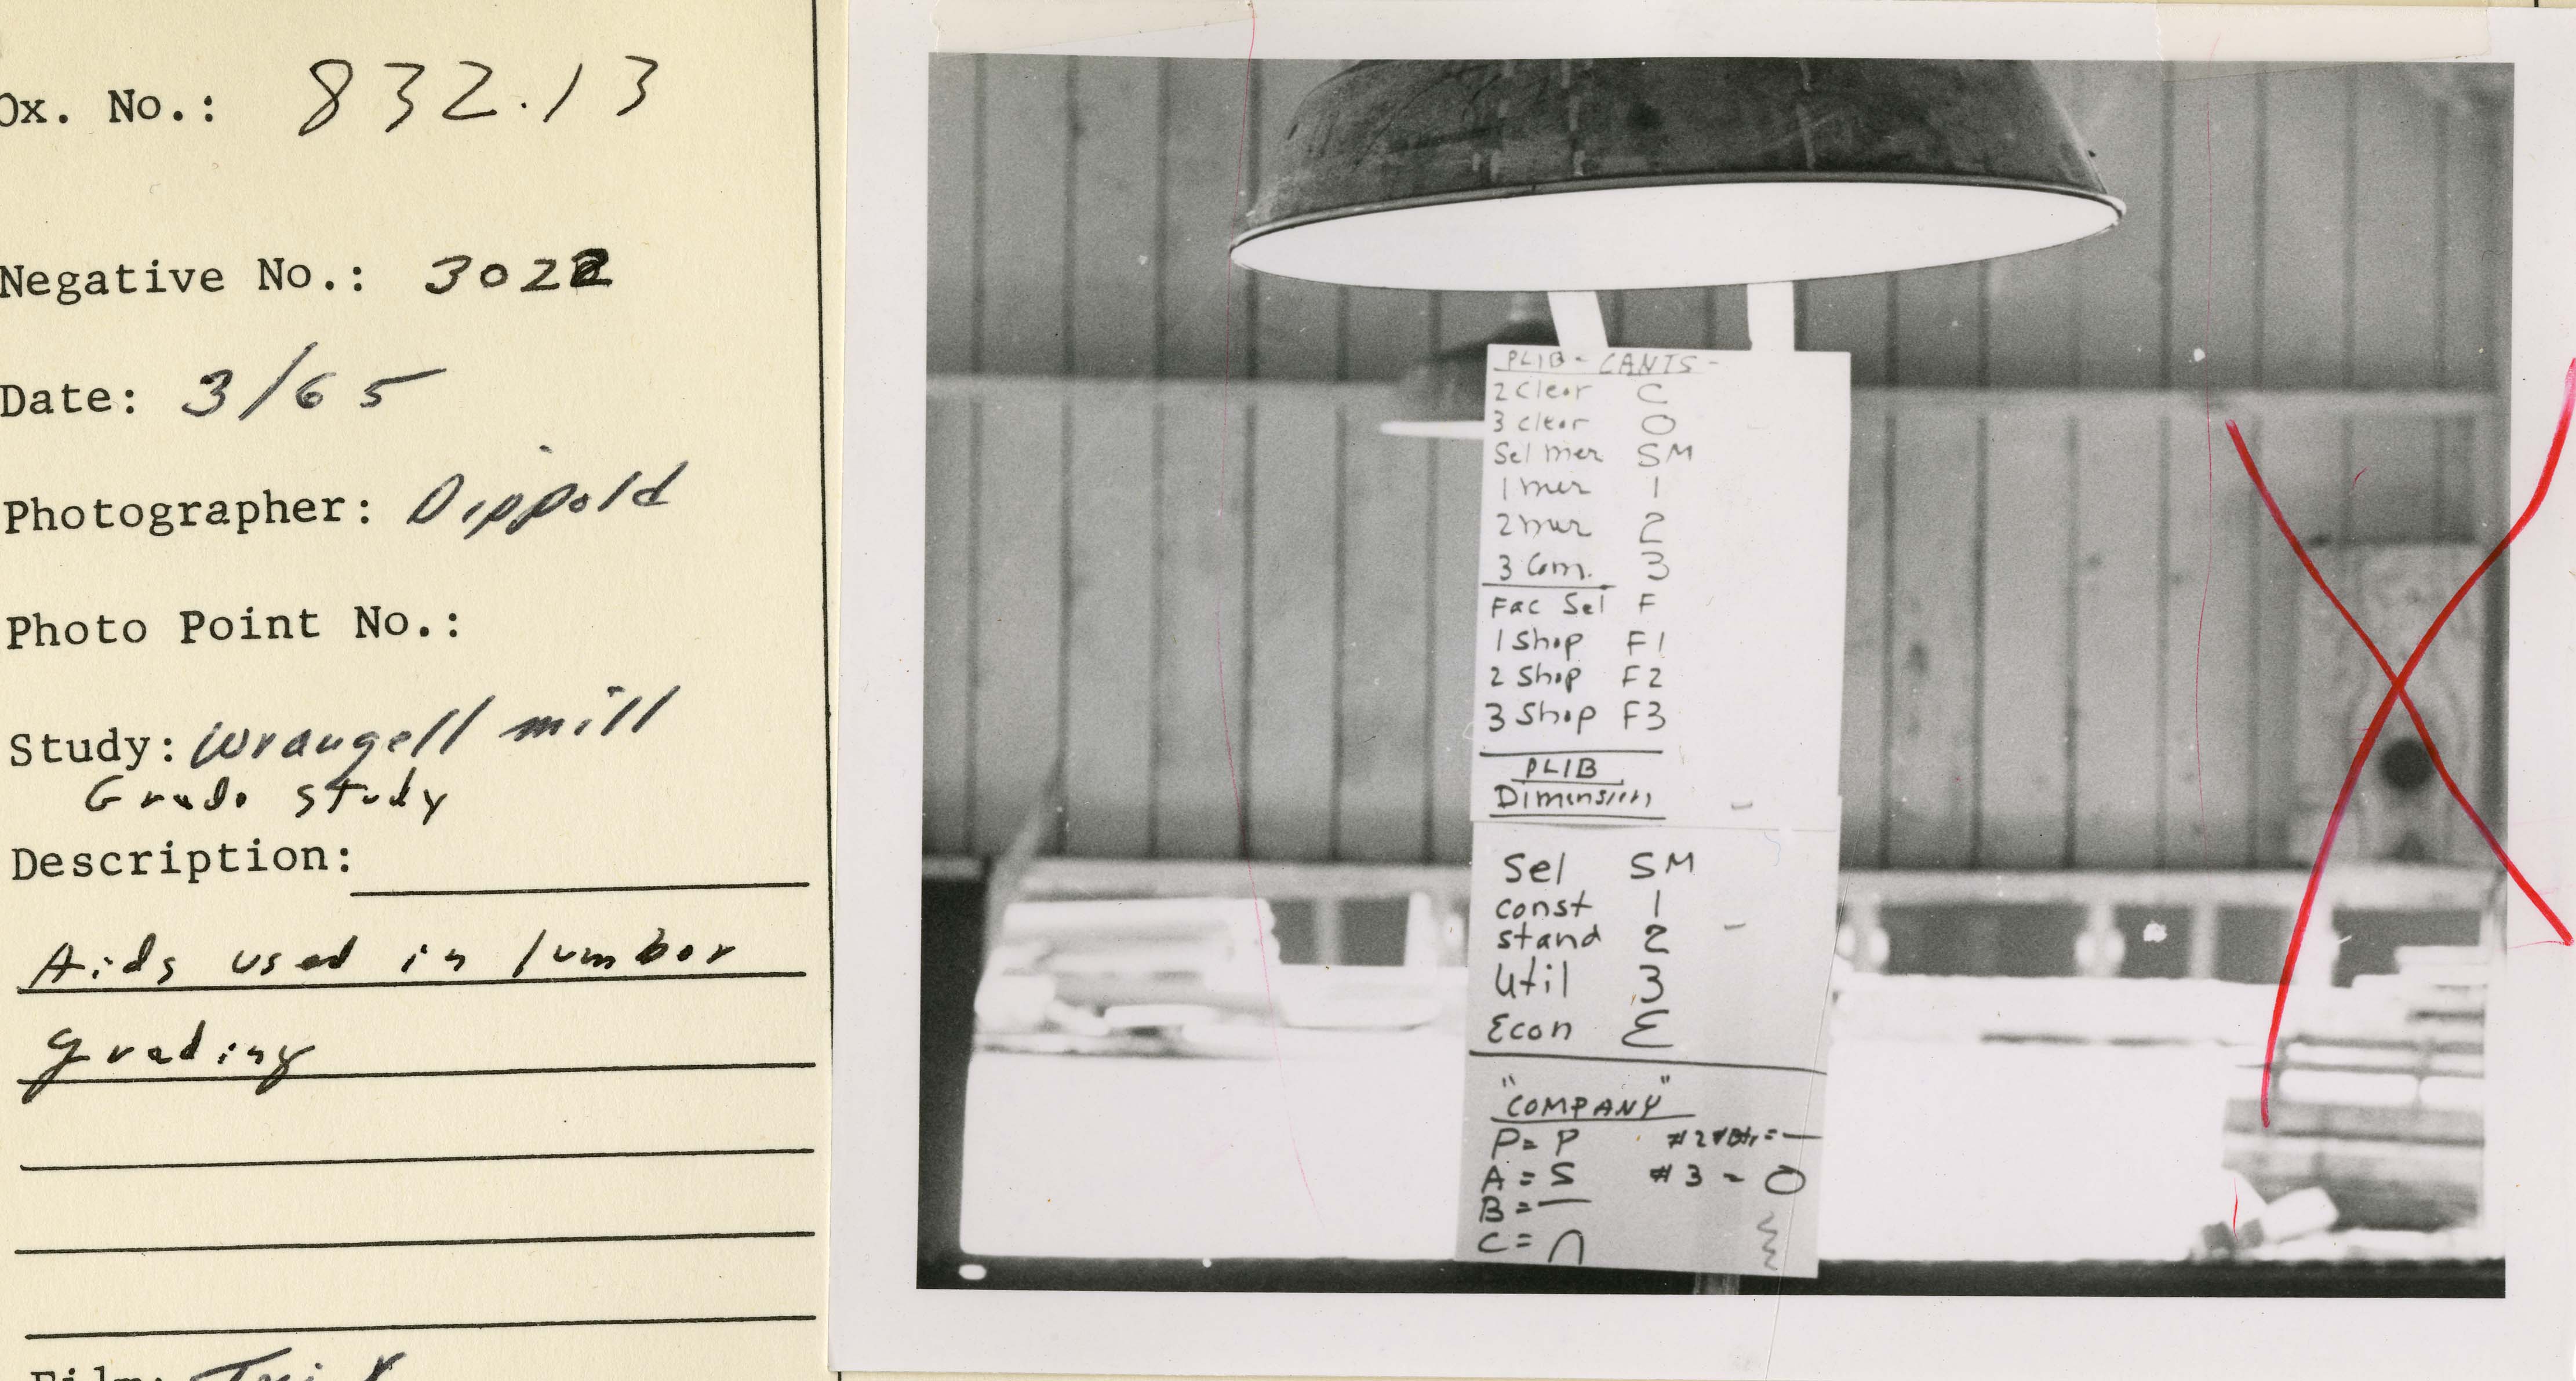 Ox. No.: 832.13
Negative No.: 3022
Date: 3/65
Photographer: Dippold
Photo Point No.:
Study: Wrangell mill
Grade study
Description:
Aids used in lumber
grading
Film: Tri X
PLIB - CANTS -
2 Clear C
3 clear O
Sel mer SM
1 mer 1
2 mer 2
3 Com. 3
Fac Sel F
1 Shop F1
2 Shop F2
3 Shop F3
PLIB
Dimension
Sel SM
const 1
stand 2
Util 3
Econ E
"COMPANY"
P = P #2 & Btr = —
A = S #3 - O
B = —
C = ∩